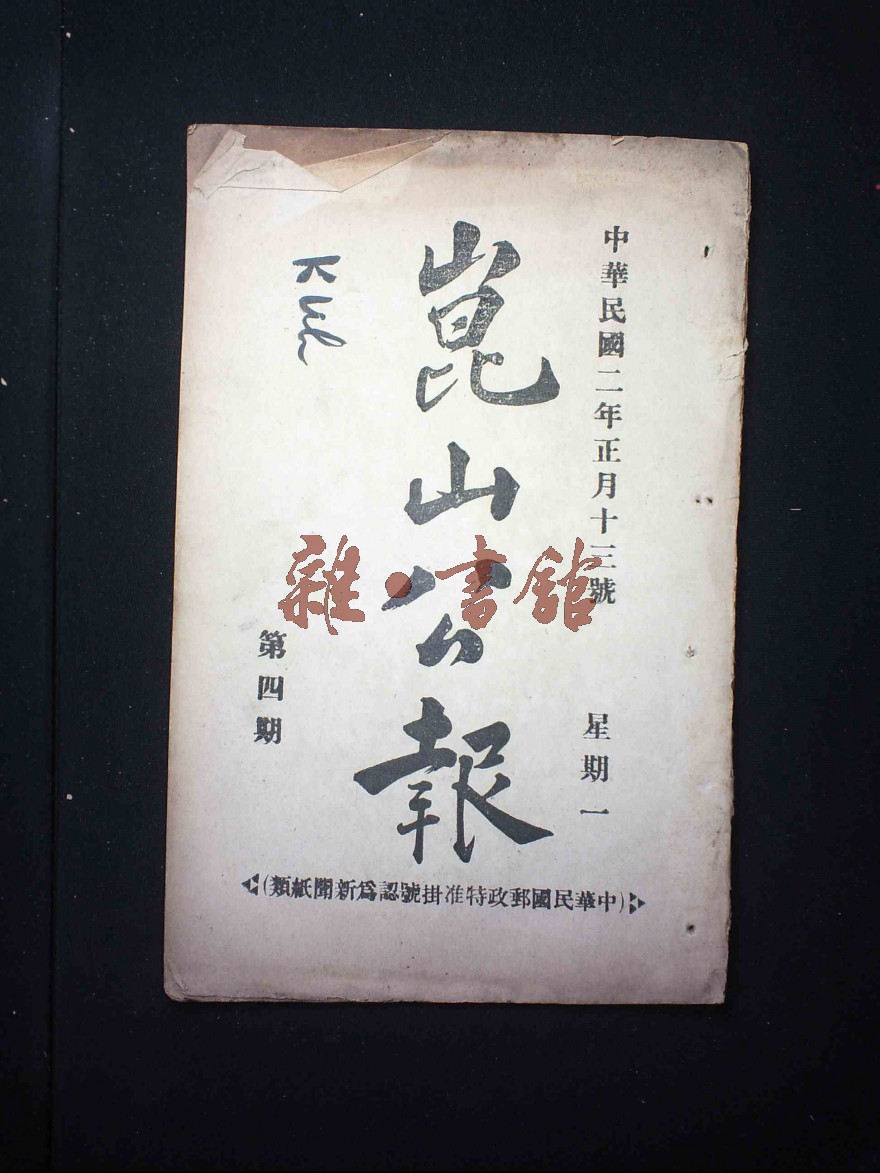 中華民國二年正月十三號
星期一
崑山公報
第四期
(中華民國郵政特准掛號認爲新聞紙類)
雜·書館